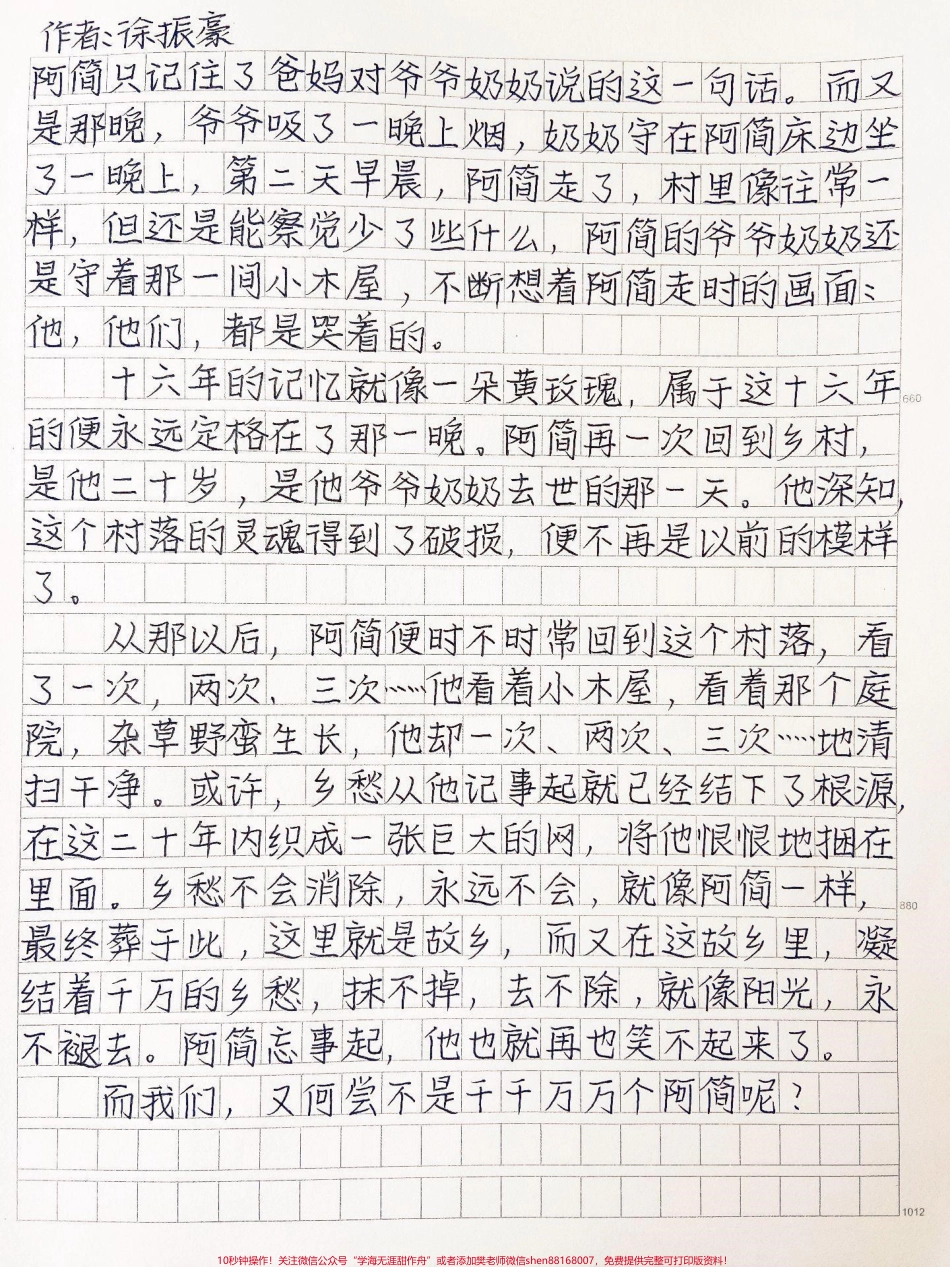 作者:徐振豪
阿简只记住了爸妈对爷爷奶奶说的这一句话。而又
是那晚，爷爷吸了一晚上烟，奶奶守在阿简床边坐
了一晚上，第二天早晨，阿简走了，村里像往常一
样，但还是能察觉少了些什么，阿简的爷爷奶奶还
是守着那一间小木屋，不断想着阿简走时的画面：
他，他们，都是哭着的。
十六年的记忆就像一朵黄玫瑰，属于这十六年
的便永远定格在了那一晚。阿简再一次回到乡村，
是他二十岁，是他爷爷奶奶去世的那一天。他深知，
这个村落的灵魂得到了破损，便不再是以前的模样
了。
从那以后，阿简便时不时常回到这个村落，看
了一次，两次、三次……他看着小木屋，看着那个庭
院，杂草野蛮生长，他却一次、两次、三次……地清
扫干净。或许，乡愁从他记事起就已经结下了根源，
在这二十年内织成一张巨大的网，将他恨恨地捆在
里面。乡愁不会消除，永远不会，就像阿简一样，
最终葬于此，这里就是故乡，而又在这故乡里，凝
结着千万的乡愁，抹不掉，去不除，就像阳光，永
不褪去。阿简忘事起，他也就再也笑不起来了。
而我们，又何尝不是千千万万个阿简呢？
660
880
1012
10秒钟操作！关注微信公众号“学海无涯甜作舟”或者添加樊老师微信shen88168007，免费提供完整可打印版资料！